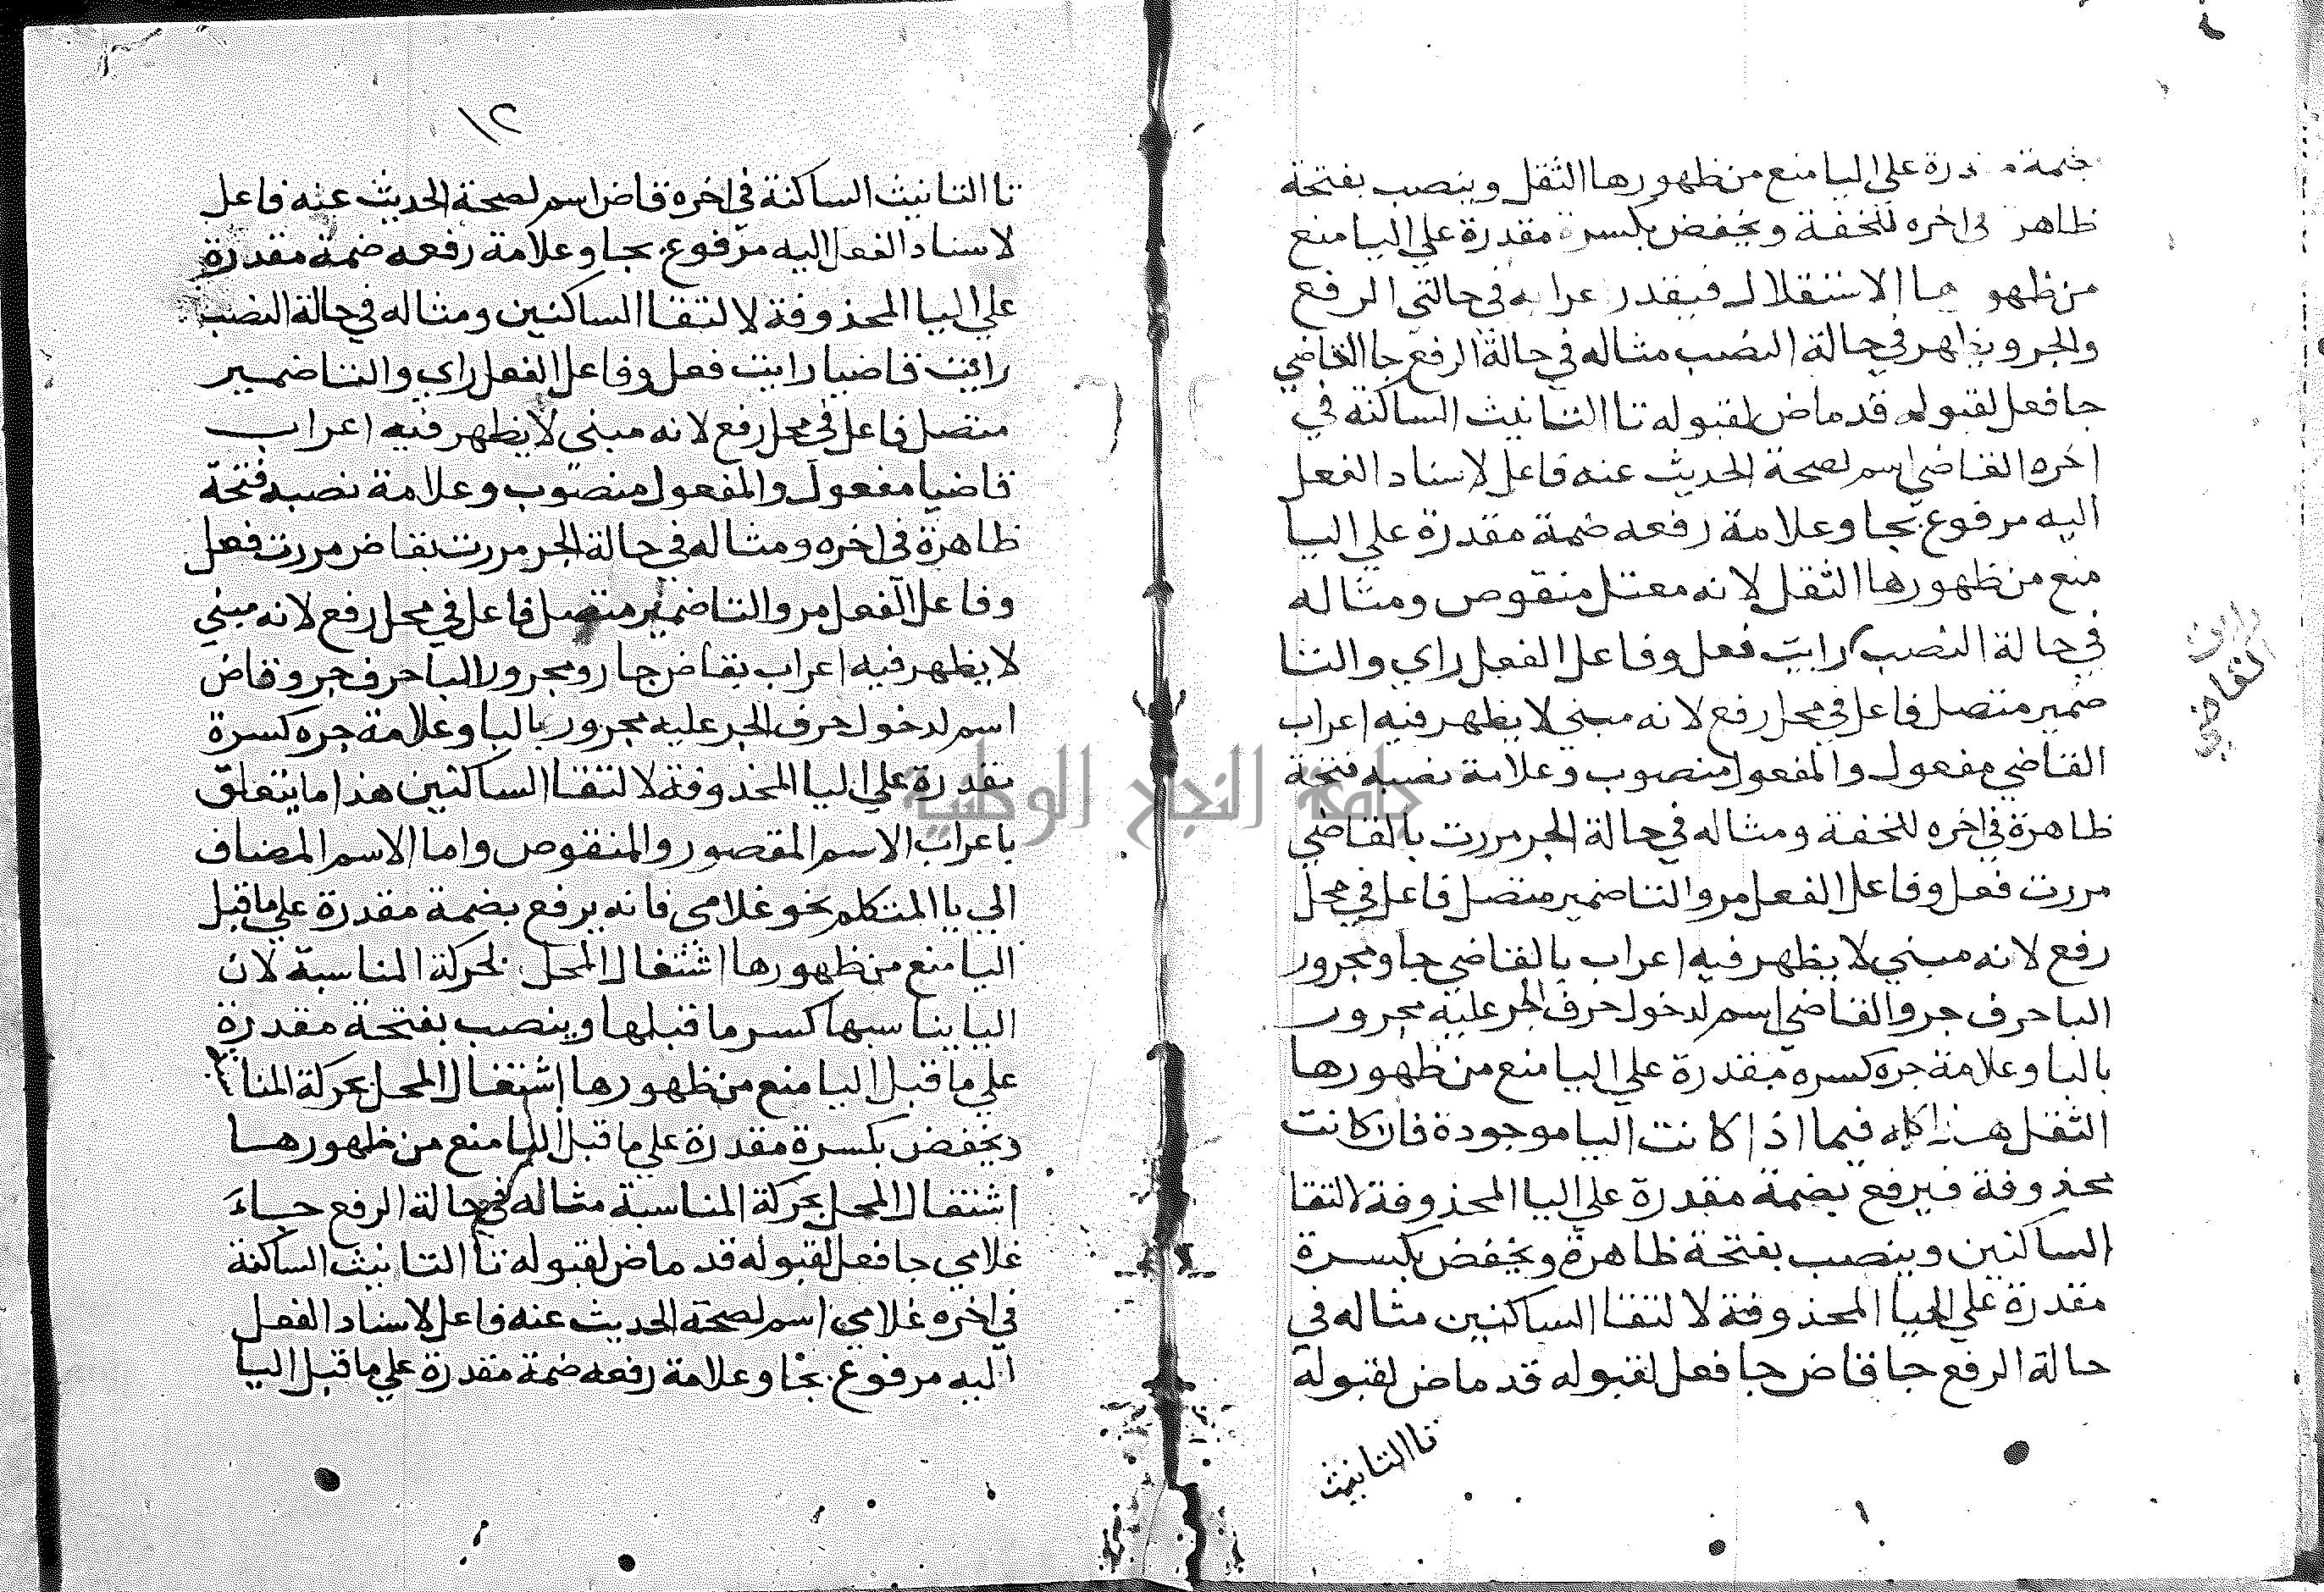 ضمة مقدرة علي اليا منع من ظهورها الثقل وينصب بفتحة
ظاهر في اخره للخفة ويخفض بكسرة مقدرة علي اليا منع
من ظهو ها الاستقلال فيقدر عرابه في حالتي الرفع
والجر ويظهر في حالة النصب مثاله في حالة الرفع جا القاضي
جا فعل لقبوله قد ماض لقبوله تا التانيث الساكنة في
اخره القاضي اسم لصحة الحديث عنه فاعل لاسناد الفعل
اليه مرفوع بجا وعلامة رفعه ضمة مقدرة علي اليا
منع من ظهورها الثقل لانه معتل منقوص ومثاله
في حالة النصب رايت فعل وفاعل الفعل راي والتا
ضمير متصل فاعل في محل رفع لانه مبني لا يظهر فيه اعراب
القاضي مفعول والمفعول منصوب وعلامة نصبه فتحة
ظاهرة في اخره للخفة ومثاله في حالة الجر مررت بالقاضي
مررت فعل وفاعل الفعل مر والتا ضمير متصل فاعل في محل
رفع لانه مبني لا يظهر فيه اعراب بالقاضي جا ومجرور
البا حرف جر والقاضي اسم لدخول حرف الجر عليه مجرور
بالبا وعلامة جره كسره مقدرة علي اليا منع من ظهورها
الثقل هذا كله فيما اذا كانت اليا موجودة فان كانت
محذوفة فيرفع بضمة مقدرة علي اليا المحذوفة لالتقا
الساكنين وينصب بفتحة ظاهرة ويخفض بكسرة
مقدرة علي اليا المحذوفة لالتقا الساكنين مثاله في
حالة الرفع جا قاض جا فعل لقبوله قد ماض لقبوله
تا التانيث
رايت
القاضي
١٢
تا التانيث الساكنة في اخره قاض اسم لصحة الحديث عنه فاعل
لاسناد الفعل اليه مرفوع بجا وعلامة رفعه ضمة مقدرة
علي اليا المحذوفة لالتقا الساكنين ومثاله في حالة النصب
رايت قاضيا رايت فعل وفاعل الفعل راي والتا ضمير
متصل فاعل في محل رفع لانه مبني لا يظهر فيه اعراب
قاضيا مفعول والمفعول منصوب وعلامة نصبه فتحة
ظاهرة في اخره ومثاله في حالة الجر مررت بقاض مررت فعل
وفاعل الفعل مر والتا ضمير متصل فاعل في محل رفع لانه مبني
لا يظهر فيه اعراب بقاض جار ومجرور البا حرف جر وقاض
اسم لدخول حرف الجر عليه مجرور بالبا وعلامة جره كسرة
مقدرة علي اليا المحذوفة لالتقا الساكنين هذا ما يتعلق
باعراب الاسم المقصور والمنقوص واما الاسم المضاف
الي يا المتكلم نحو غلامي فانه يرفع بضمة مقدرة علي ما قبل
اليا منع من ظهورها اشتغال المحل بحركة المناسبة لان
اليا يناسبها كسر ما قبلها وينصب بفتحة مقدرة
علي ما قبل اليا منع من ظهورها اشتغال المحل بحركة المنا
ويخفض بكسرة مقدرة علي ما قبل اليا منع من ظهورها
اشتغال المحل بحركة المناسبة مثاله في حالة الرفع جاء
غلامي جا فعل لقبوله قد ماض لقبوله تا التانيث الساكنة
في اخره غلامي اسم لصحة الحديث عنه فاعل لاسناد الفعل
اليه مرفوع بجا وعلامة رفعه ضمة مقدرة علي ما قبل اليا
جامعة النجاح الوطنية